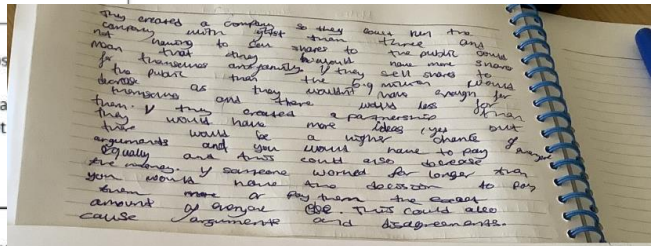 They created a company so they could run the
company with just them three and
not having to sell shares to the public could
mean that they would have more shares
for themselves and family. If they sell shares to
the public than the 6.9 million would
decrease as they wouldn't have enough for
themselves and there would less for
them. If they created a partnership than
they would have more ideas, yes but
there would be a higher chance of
arguments and you would have to pay everyone
equally and this could also decrease
the money. If someone worked for longer than
you would have the decision to pay
them more or pay them the exact
amount of everyone else. This could also
cause arguments and disagreements.